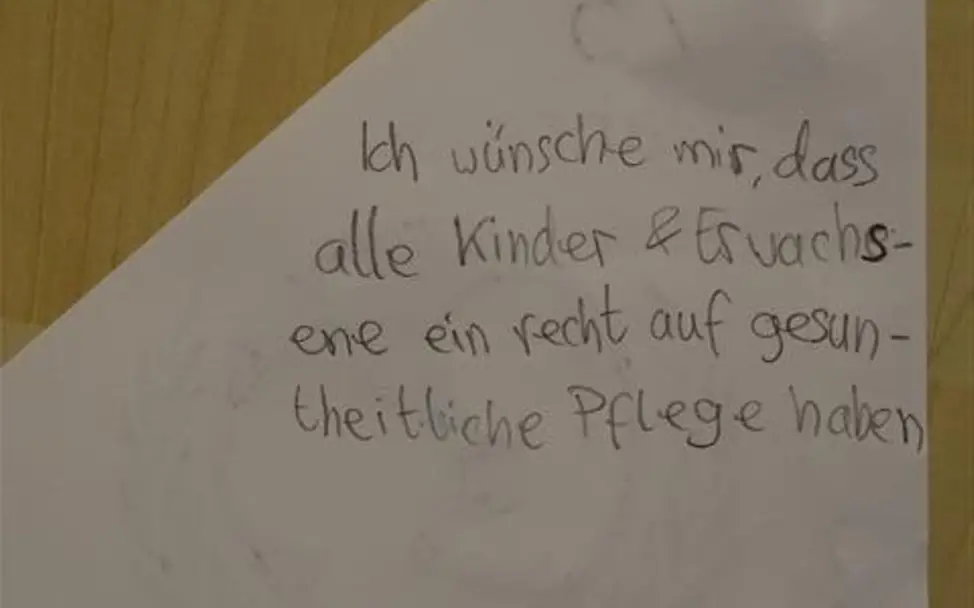 Ich wünsche mir, dass
alle Kinder & Ervachs-
ene ein recht auf gesun-
theitliche Pflege haben